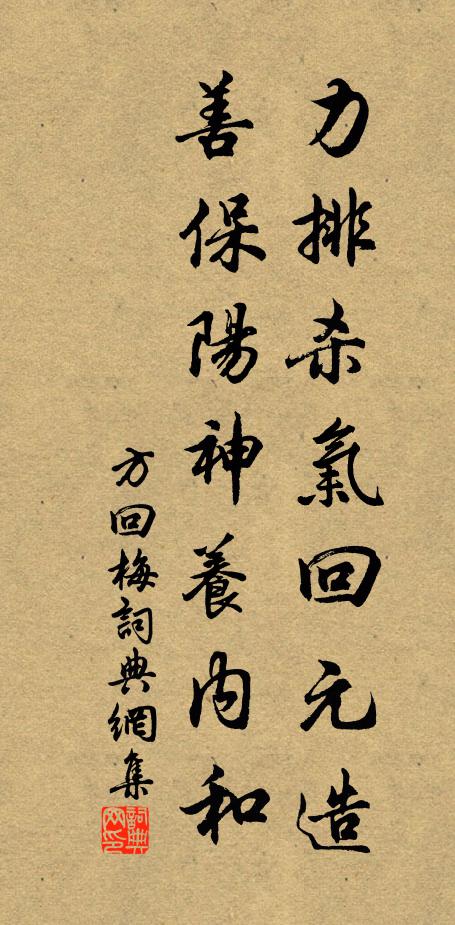 力排杀氣回元造
善保陽神養内和
方回梅詞典網集
詞典网印